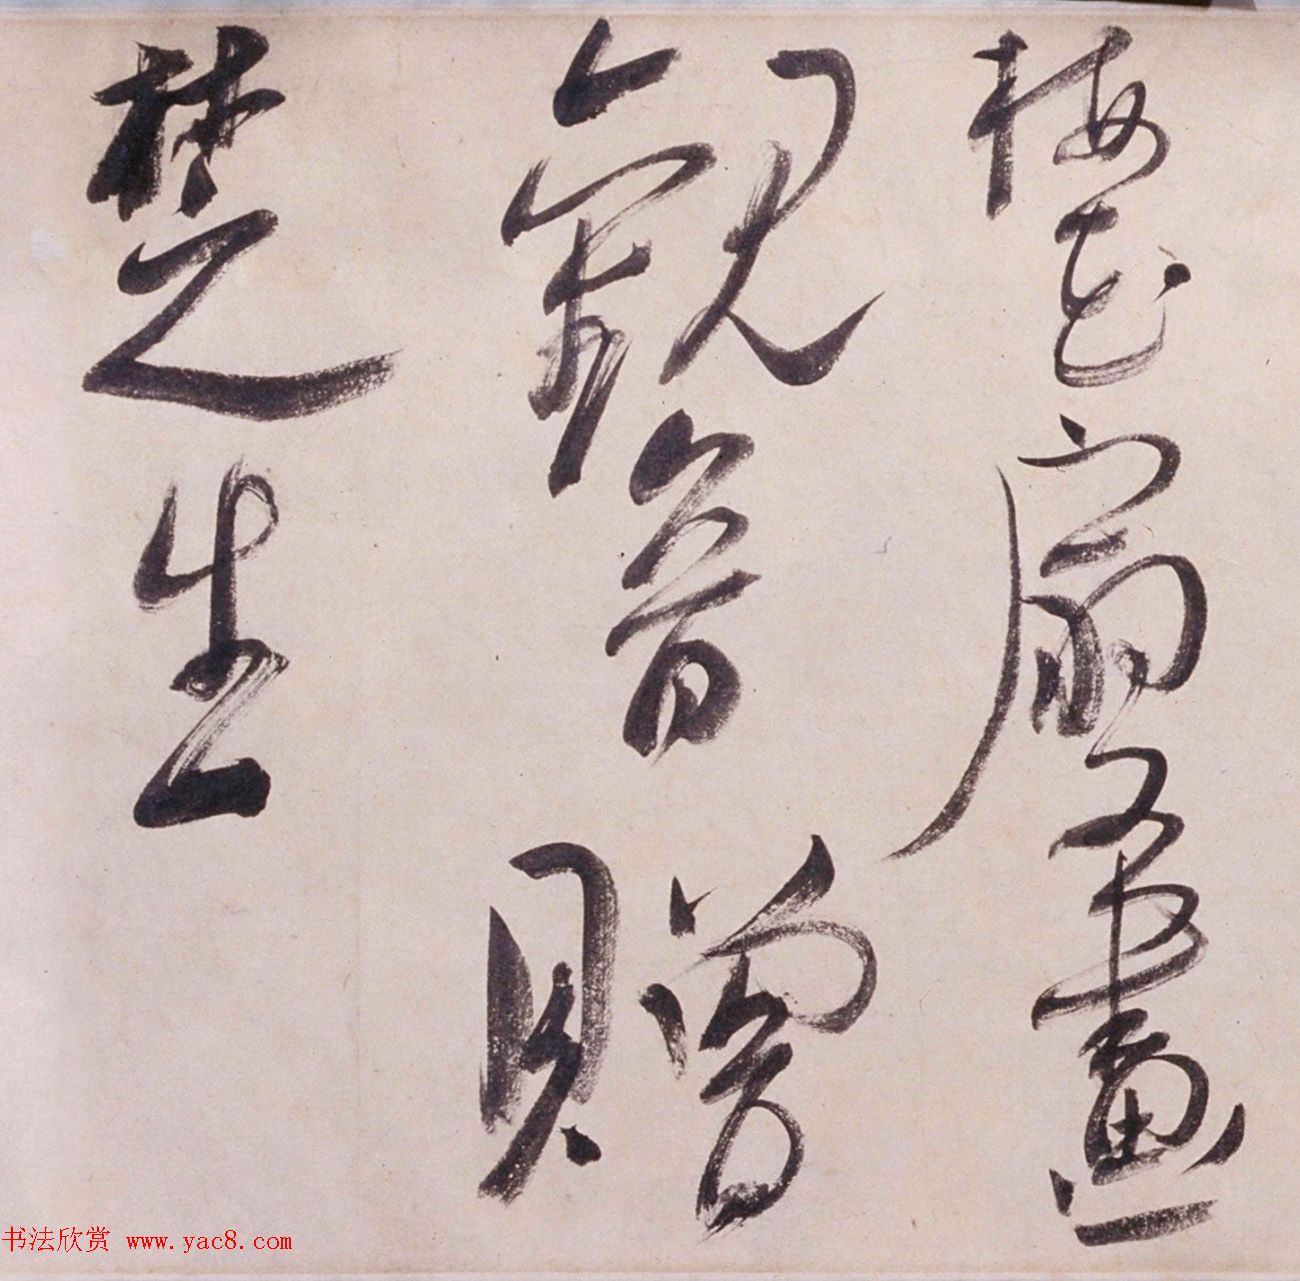 梅花扇又畫
觀音贈
楚生
书法欣赏 www.yac8.com